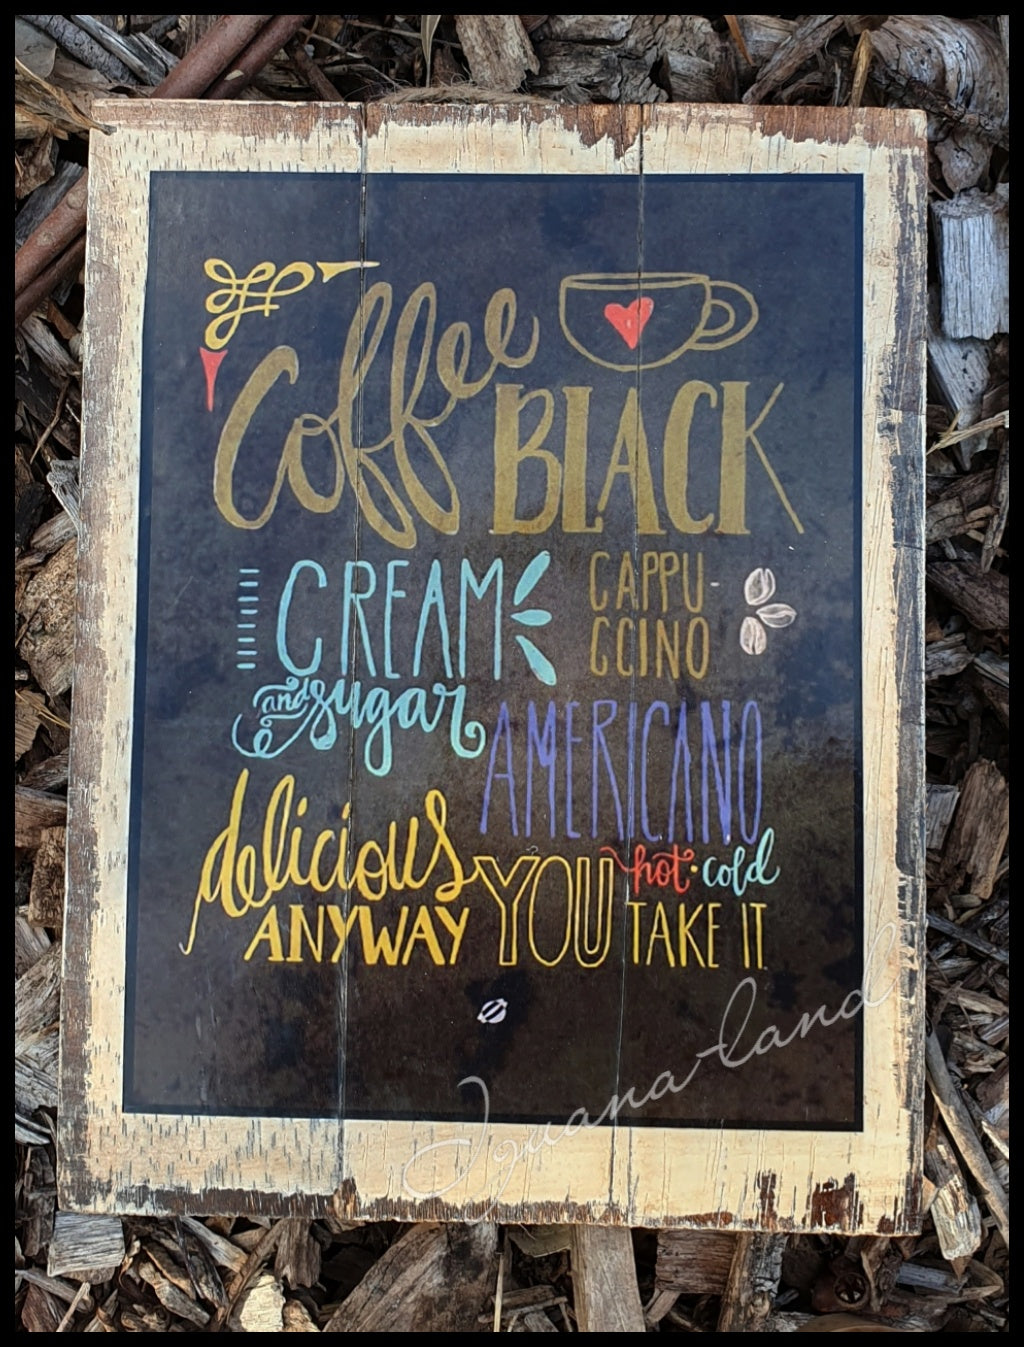 Coffee
BLACK
CREAM
and sugar
CAPPU-
CCINO
AMERICANO
delicious
ANYWAY
YOU
hot·cold
TAKE IT
Iguana-land